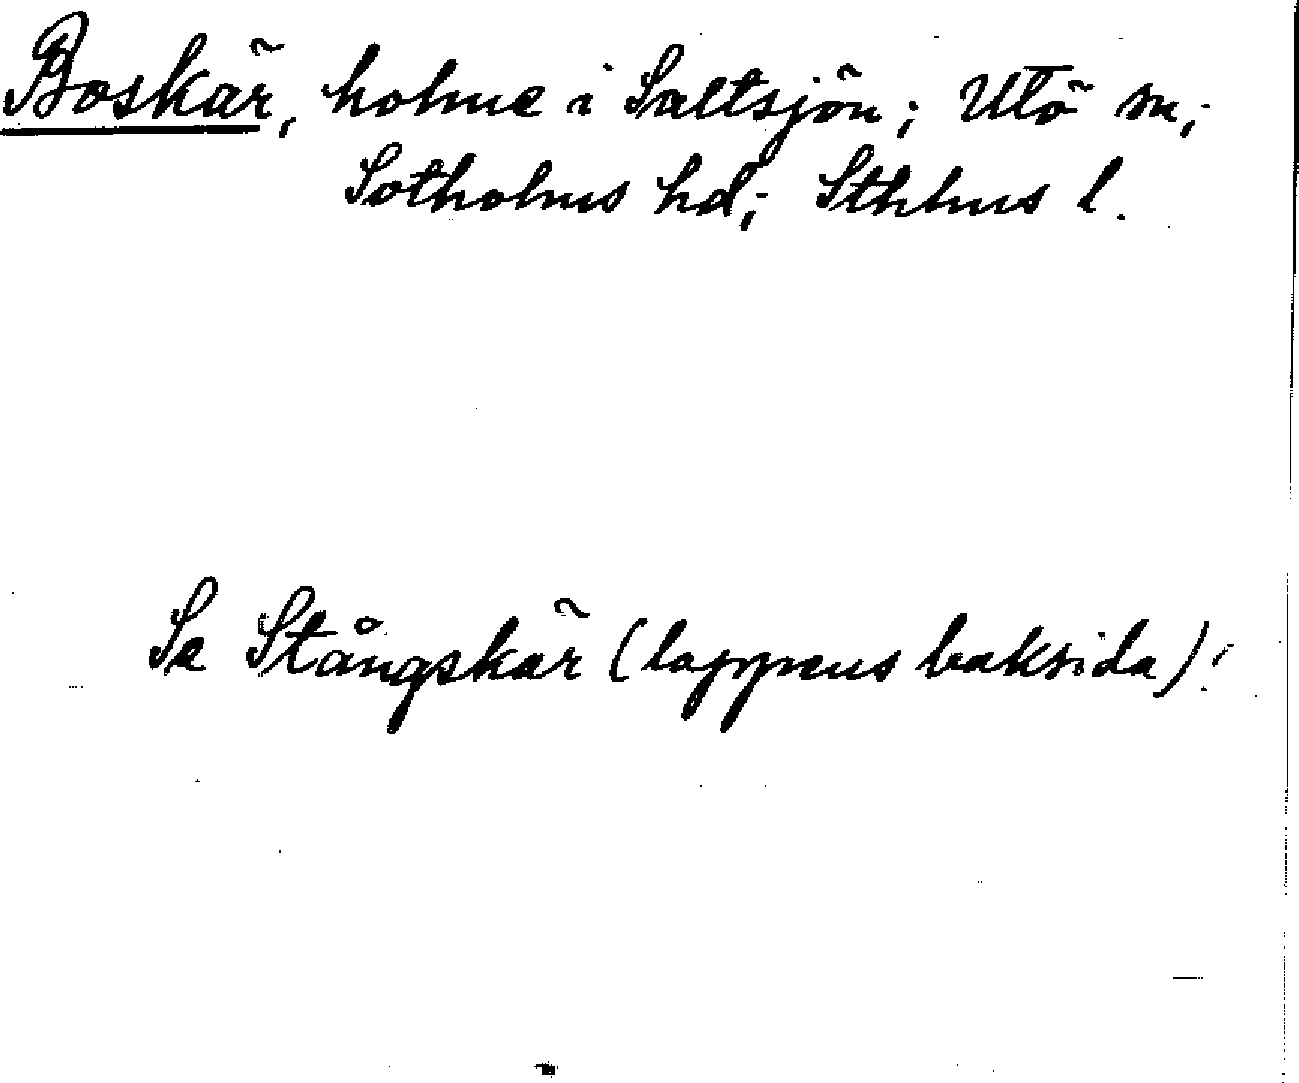 Boskär, holme i Saltsjön; Utö sn;
Sotholms hd; Sthlms l.
Se Stångskär (lappens baksida)!